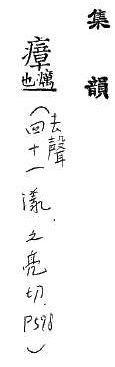 集韻
瘴癘也(去聲四十一漾.之亮切.P598)